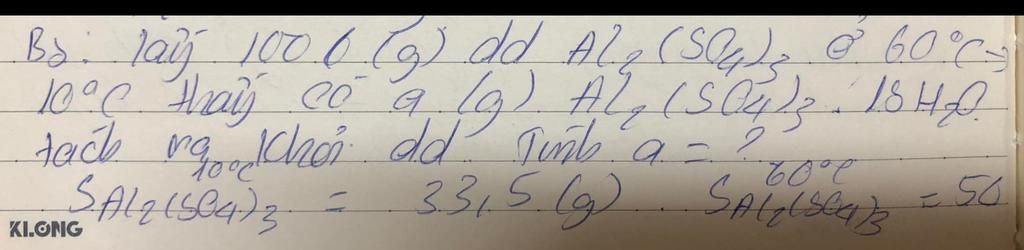 B2: lấy 1006 (g) dd Al₂(SO₄)₃ ở 60°C →
10°C thấy có a (g) Al₂(SO₄)₃.18H₂O
tách ra khỏi dd Tính a = ?
S 10°C Al₂(SO₄)₃ = 33,5 (g) S 60°C Al₂(SO₄)₃ = 50
KLONG